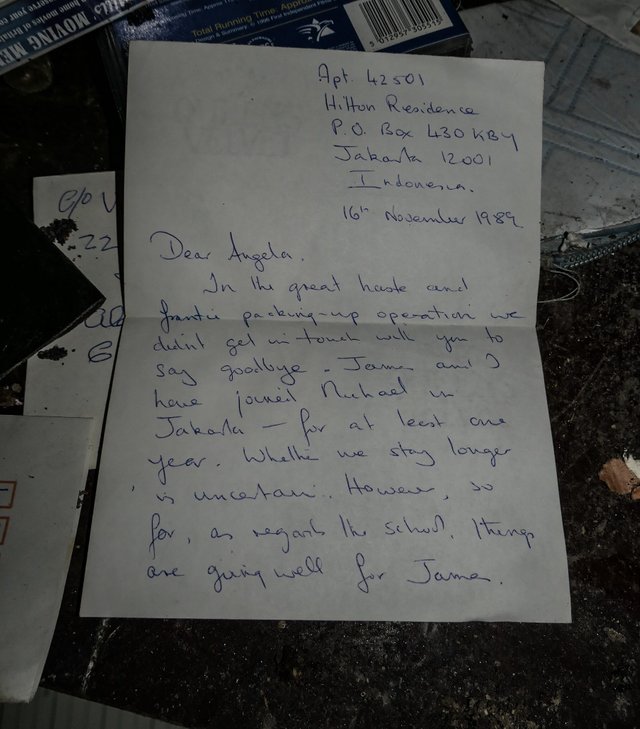 'MOVING ME
Total Running Time: Approx
Design & Summary © 1996 First Independent Films
5 012957 305515
Apt. 42501
Hilton Residence
P.O. Box 430 KBY
Jakarta 12001
Indonesia.
16th November 1989
c/o V
22
6
Dear Angela.
In the great haste and
frantic packing-up operation we
didn't get in-touch with you to
say goodbye. James and I
have joined Michael in
Jakarta – for at least one
year. Whether we stay longer
is uncertain. However, so
far, as regards the school, things
are going well for James.